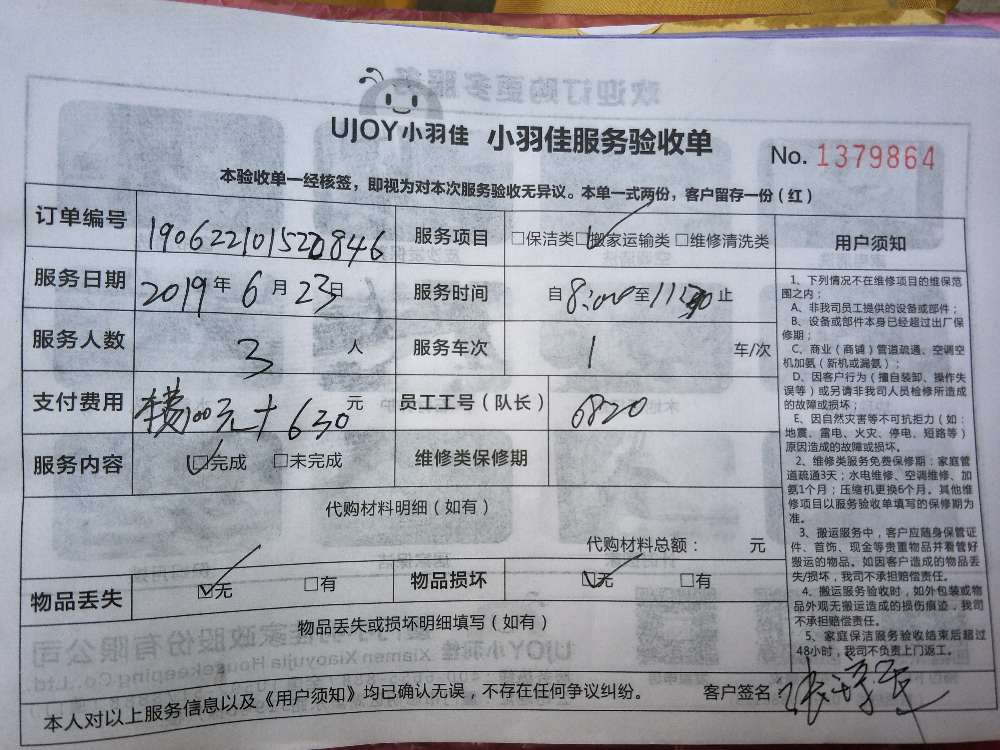 UJOY小羽佳 小羽佳服务验收单
No. 1379864
本验收单一经核签，即视为对本次服务验收无异议。本单一式两份，客户留存一份（红）
订单编号 190622101520846 服务项目 □保洁类☑搬家运输类□维修清洗类
服务日期 2019年6月23日 服务时间 自8:00至11:30止
服务人数 3人 服务车次 1车/次
支付费用 100元+630元 员工工号（队长） 6820
服务内容 ☑完成 □未完成 维修类保修期
代购材料明细（如有）
代购材料总额： 元
物品丢失 ☑无 □有 物品损坏 ☑无 □有
物品丢失或损坏明细填写（如有）
本人对以上服务信息以及《用户须知》均已确认无误，不存在任何争议纠纷。 客户签名
用户须知
1、下列情况不在维修项目的维保范
围之内；
A、非我司员工提供的设备或部件；
B、设备或部件本身已经超过出厂保
修期；
C、商业（商铺）管道疏通、空调空
机加氨（新机或漏氨）；
D、因客户行为（擅自装卸、操作失
误等）或另请非我司人员检修所造成
的故障或损坏；
E、因自然灾害等不可抗拒力（如：
地震、雷电、火灾、停电、短路等）
原因造成的故障或损坏。
2、维修类服务免费保修期：家庭管
道疏通3天；水电维修、空调维修、加
氨1个月；压缩机更换6个月。其他维
修项目以服务验收单填写的保修期为
准。
3、搬运服务中，客户应随身保管证
件、首饰、现金等贵重物品并看管好
搬运的物品。如因客户造成的物品丢
失/损坏，我司不承担赔偿责任。
4、搬运服务验收时，如外包装或物
品外观无搬运造成的损伤痕迹，我司
不承担赔偿责任。
5、家庭保洁服务验收结束后超过
48小时，我司不负责上门返工。